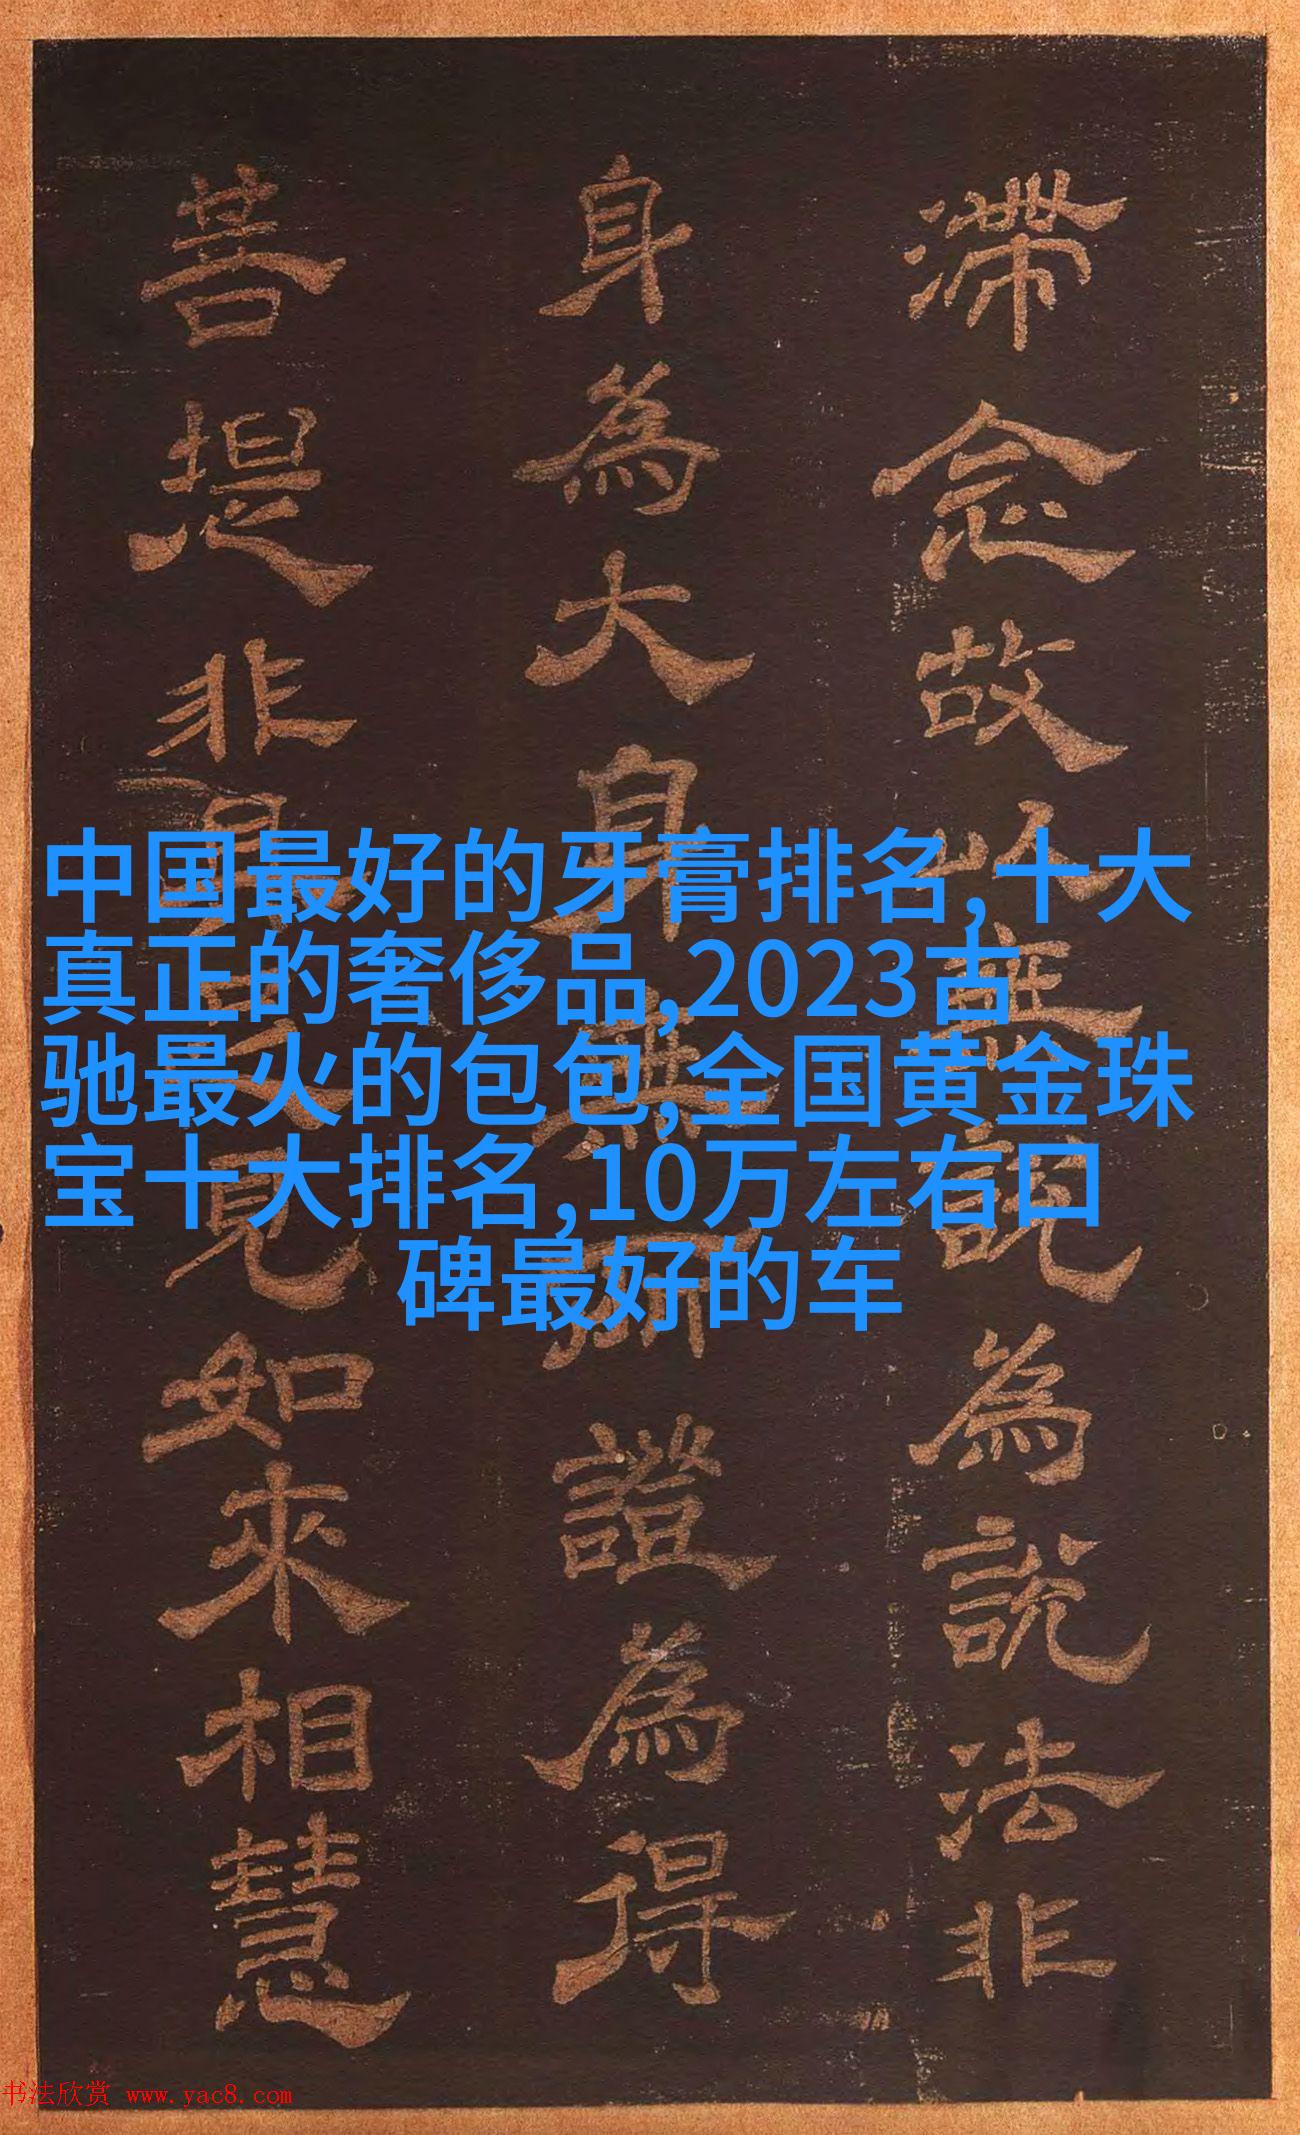 滯念故以無說為說法非
身為大身無所證為得
菩提非見見如來相慧
中国最好的牙膏排名,十大
真正的奢侈品,2023古
驰最火的包包,全国黄金珠
宝十大排名,10万左右口
碑最好的车
书法欣赏 www.yac8.com